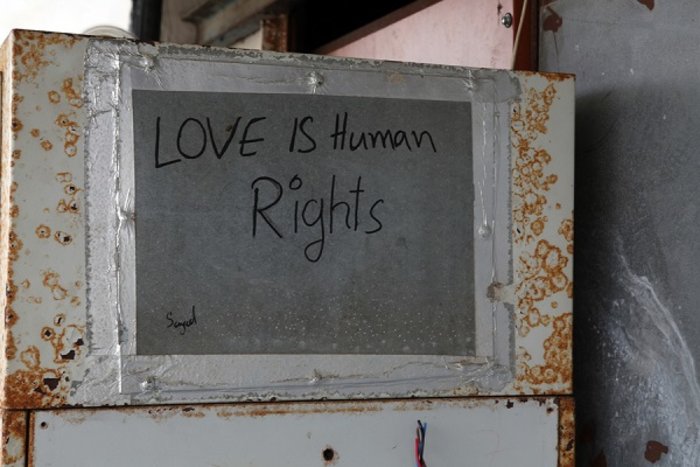 LOVE IS Human
Rights